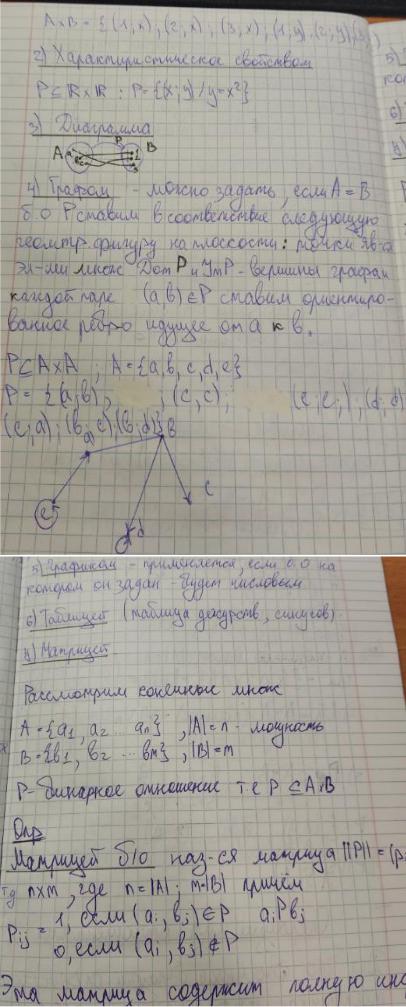 A×B = {(1,x), (2,x), (3,x), (1,y), (2,y),
2) Характеристическое свойством
P⊆ℝ×ℝ : P={(x;y) / y=x²}
3) Диаграмма
P
A B
4) Графом - можно задать, если A = B
б.о P ставим в соответствие следующую
геометр. фигуру на плоскости: точки яв-ся
эл-ми множ Dom P и Jm P - вершины графа
каждой паре (a,b)∈P ставим ориентиро-
ванное ребро идущее от a к b.
P⊆A×A ; A = {a,b,c,d,e}
P = {(a;b), ; (c,c); (e;e;); (d;d)
(e;a); (b,c);(b;d)}
a B
e c
d
5) Графиком - применяется, если б.о на
котором он задан - будет числовым
6) Таблицей (таблица, синусов)
Матрицей
Рассмотрим конечные множ
A={a₁, a₂ ... aₙ} , |A|=n - мощность
B={b₁, b₂ ... bₘ} , |B|=m
P-бинарное отношение т.е P ⊆ A×B
Опр
Матрицей б/о наз-ся матрица ||P||=(p
n×m, где n=|A|; m=|B| причём
Pij = 1, если (ai, bj)∈P aiPbj
0, если (ai, bj)∉P
Эта матрица содержит полную